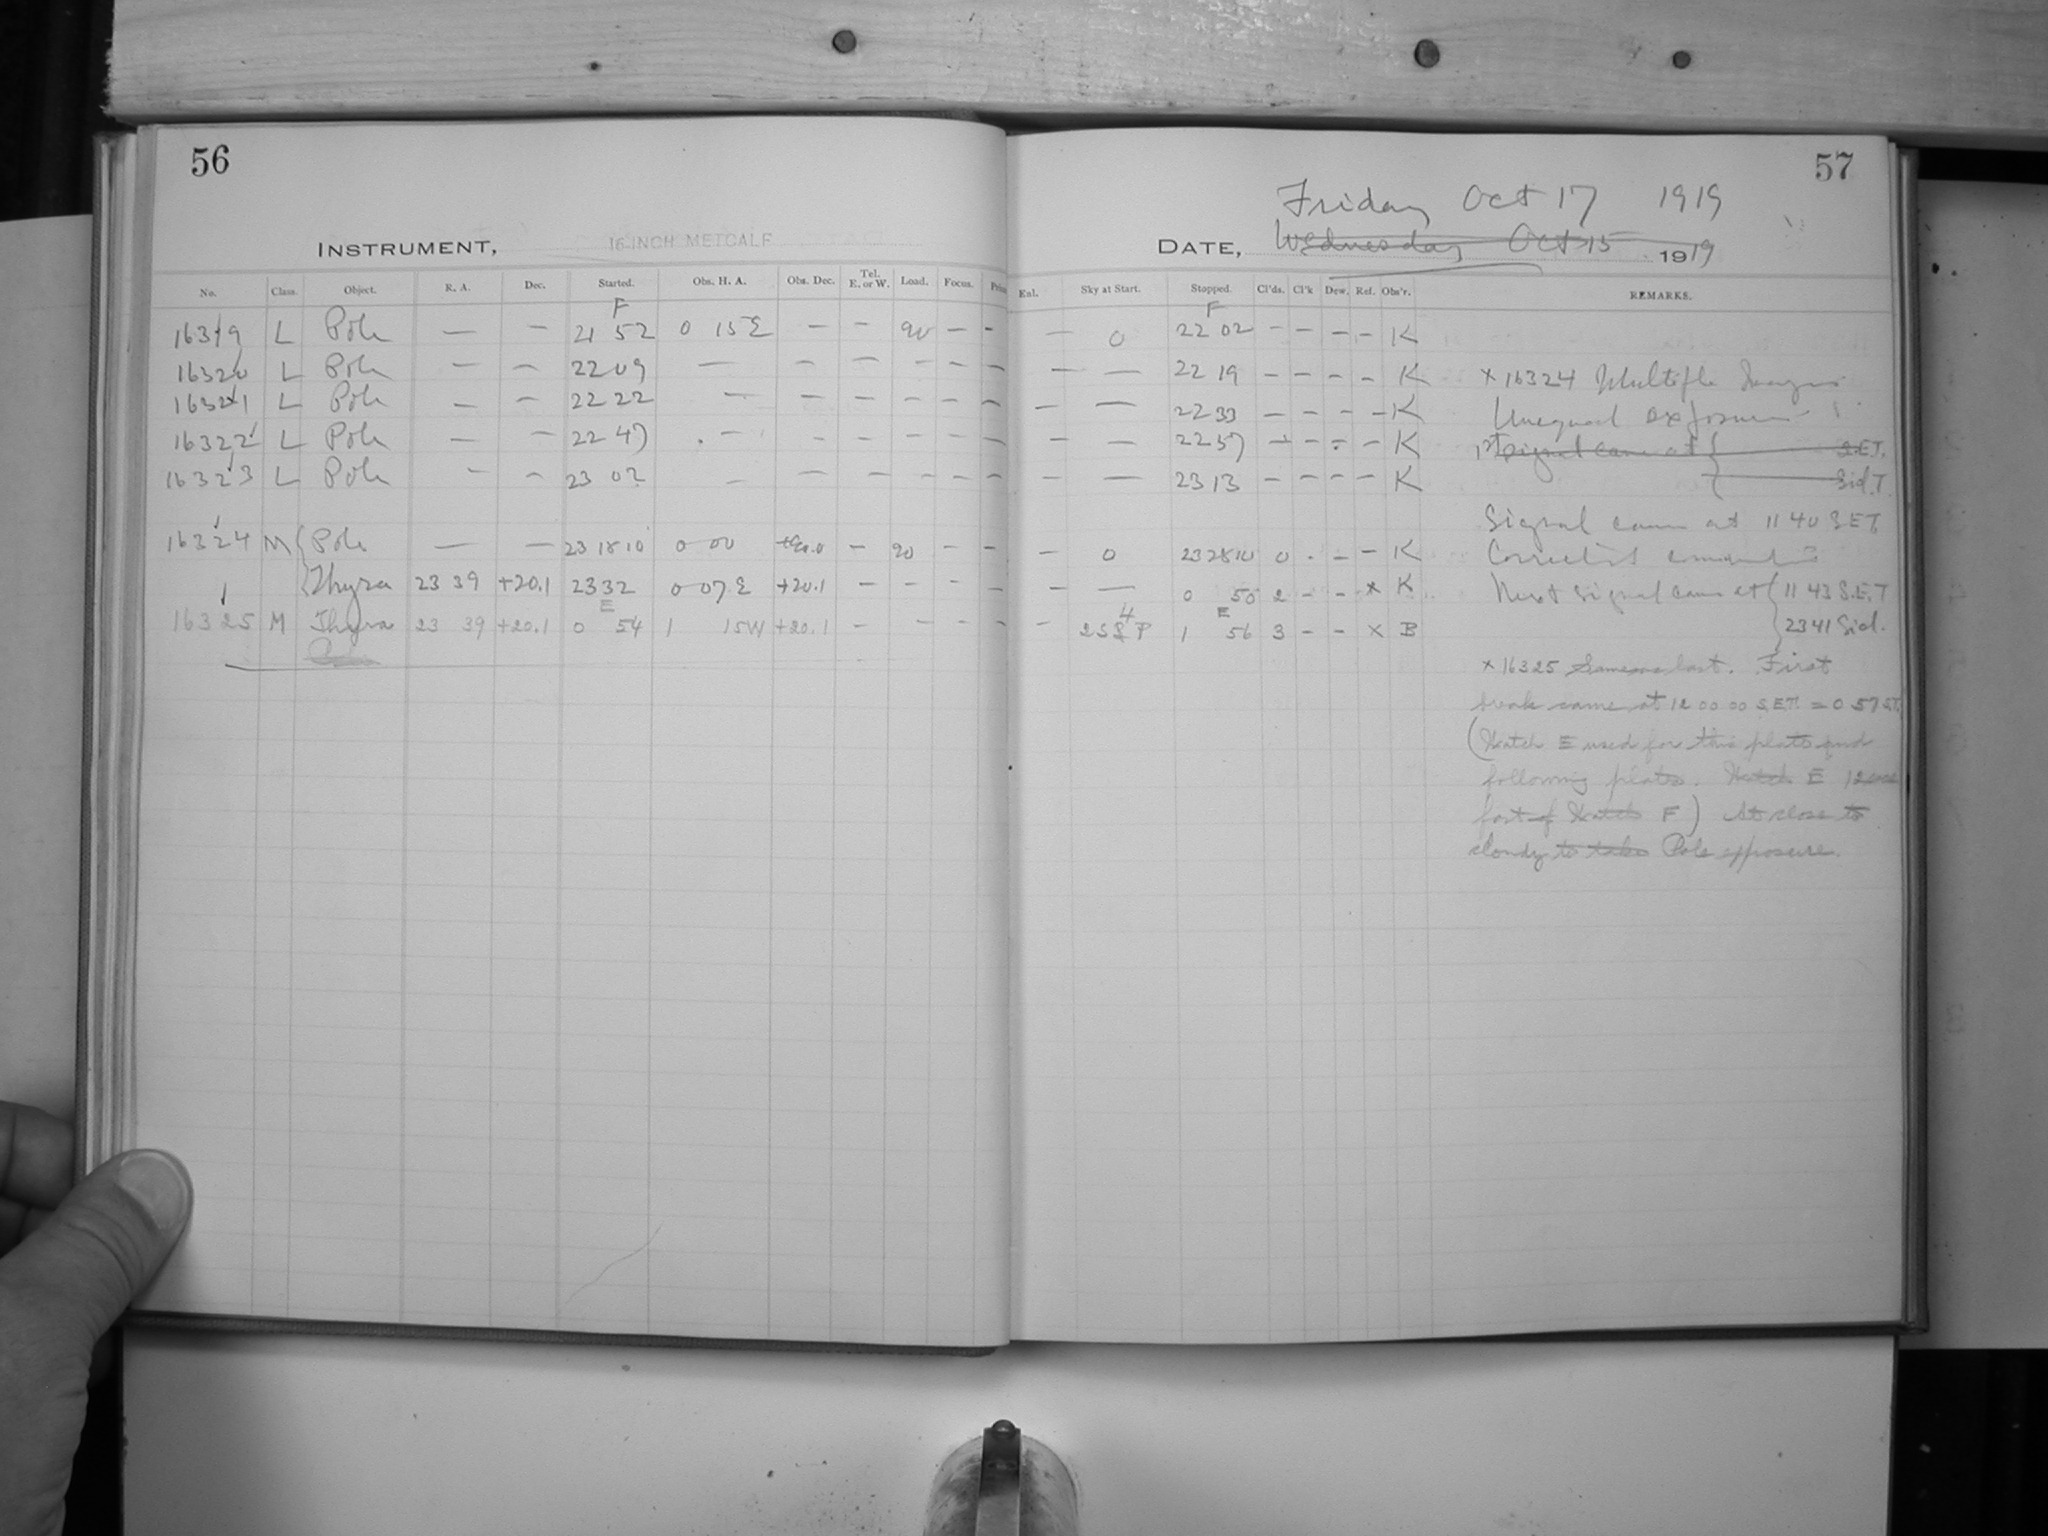 56
57
Friday Oct 17 1919
INSTRUMENT, 16-INCH METCALF
DATE, Wednesday Oct 15 1919
No. Class. Object. R. A. Dec. Started. Obs. H. A. Obs. Dec. Tel. E. or W. Load. Focus. Enl. Sky at Start. Stopped. Cl'ds. Cl'k Dew. Ref. Obs'r. REMARKS.
F F
16319 L Pole — — 21 52 0 15 E — — 90 — - — 0 22 02 — — — — K
16320 L Pole — — 22 09 — — — — — — — — 22 19 — — — — K
16321 L Pole — — 22 22 — — — — — — — — 22 33 — — — — K
16322 L Pole — — 22 47 — — — — — — — — 22 57 — — — — K
16323 L Pole — — 23 03 — — — — — — — — 23 13 — — — — K
16324 M Pole — — 23 18 10 0 00 +90.0 — 90 — - — 0 23 28 10 0 - — — K
Thyra 23 39 +20.1 23 32 0 07 E +20.1 — — — — — — 0 50 2 — — x K
E 4 E
16325 M Thyra 23 39 +20.1 0 54 1 15 W +20.1 — — — — — 2 S P 1 56 3 — — x B
x 16324 Multiple Images
Unequal exposure
1st Signal came at S.E.T.
Sid. T.
Signal came at 11 40 S.E.T.
Next signal came at 11 43 S.E.T
23 41 Sid.
x 16325 Same as last. First
break came at 12 00 00 S.E.T. = 0 57 S.T.
(Watch E used for this plate and
following plates. Watch E
fast of Watch F) At close to
cloudy to take Pole exposure.